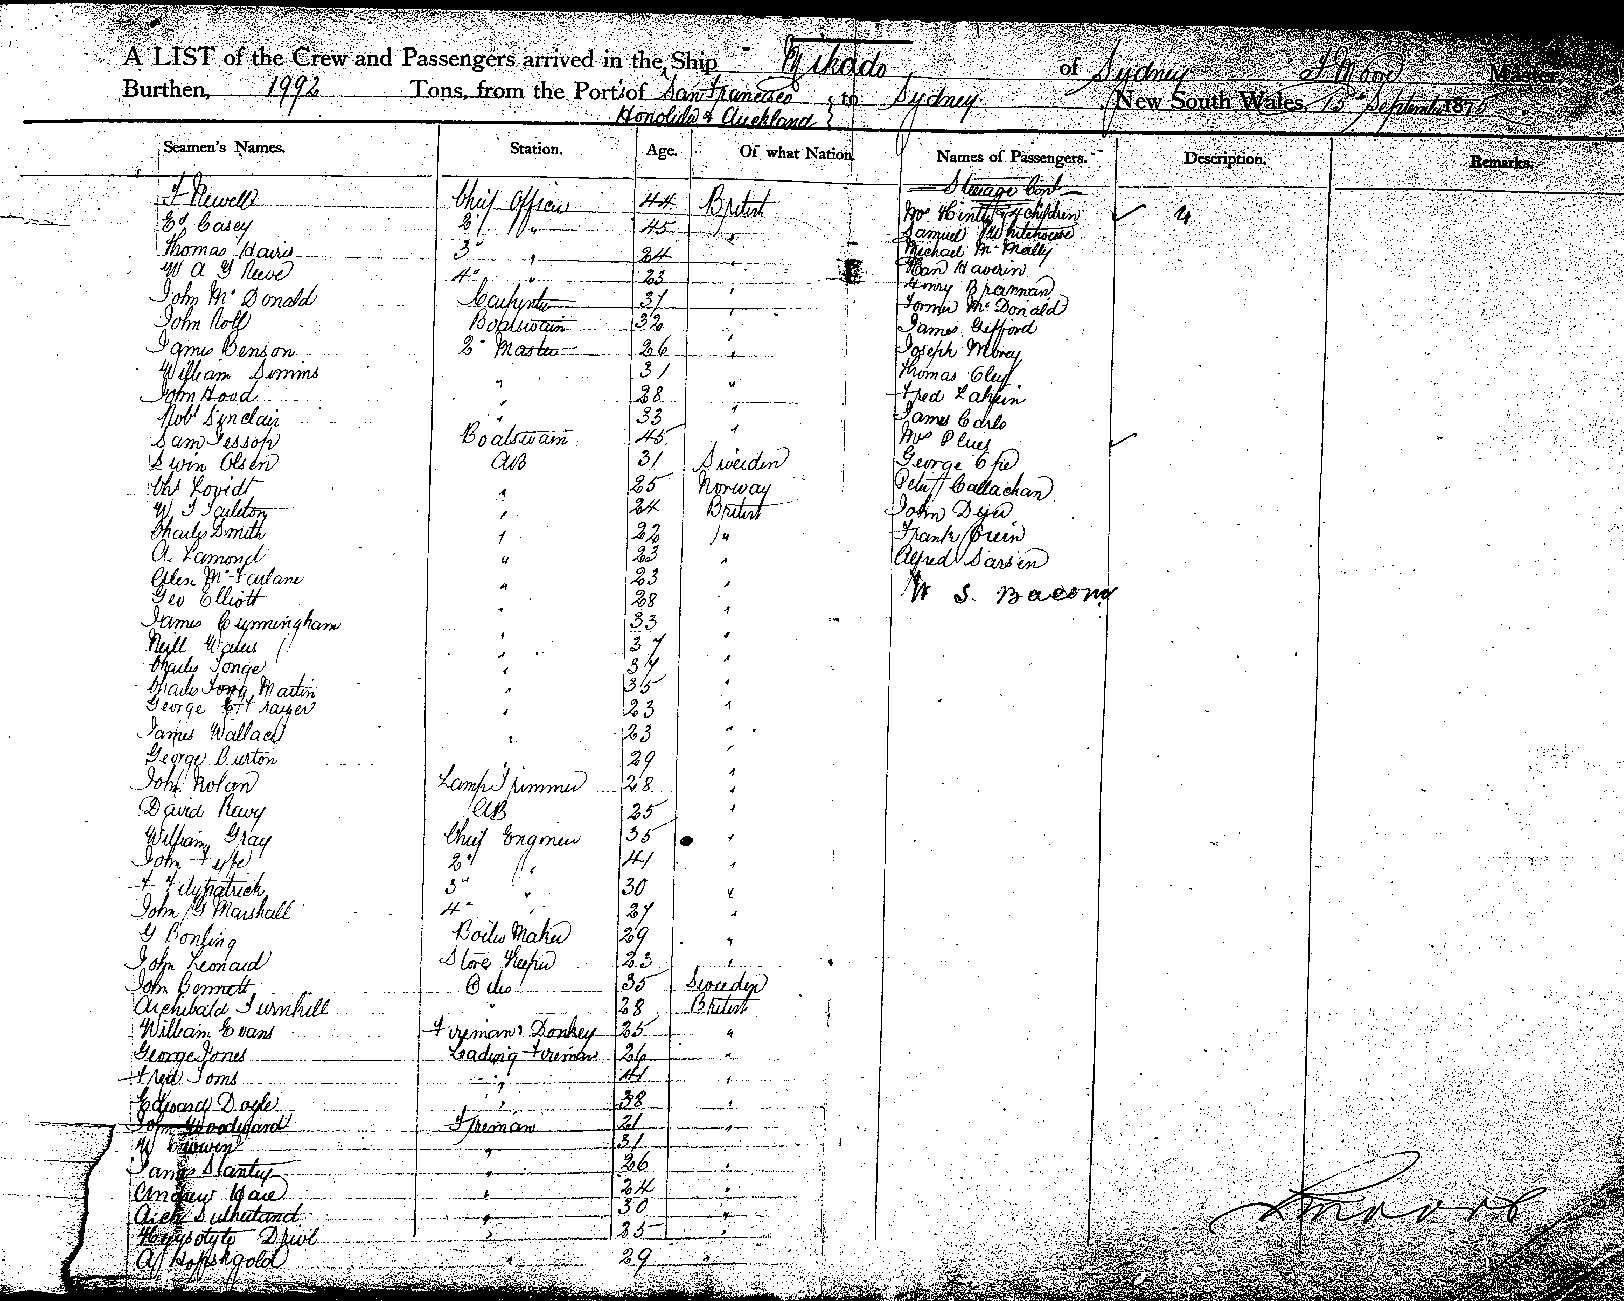 A LIST of the Crew and Passengers arrived in the Ship Mikado of Sydney Master
Burthen, 1992 Tons, from the Port of San Francisco to Sydney New South Wales, 15 September 187
Honolulu & Auckland
Seamen's Names. Station. Age. Of what Nation. Names of Passengers. Description. Remarks.
F Newell Chief Officer 44 British
Ed Casey 2d " 45 "
Thomas Davis 3d " 24 "
W A G Reeve 4th " 23 "
John McDonald Carpenter 31 "
John Roll Boatswain 32 "
James Benson 2r Master 26 "
William Simms " 31 "
John Hood " 28 "
Robt Sinclair " 33 "
Sam Jessop Boatswain 45 "
Swin Olsen AB 31 Sweden
Chs Lovidt " 25 Norway
W J Tarleton " 24 British
Charles Smith " 22 "
A Lamond " 23 "
Allen McFarlane " 23 "
Geo Elliott " 28 "
James Cunningham " 33 "
Neill " 37 "
Charles Tonge " 37 "
Charles Martin " 35 "
George " 23 "
James Wallace " 23 "
George Burton " 29 "
John Nolan Lamp Trimmer 28 "
David Revy AB 25 "
William Gray Chief Engineer 35 "
John Fyfe 2d " 41 "
F Fitzpatrick 3d " 30 "
John G Marshall 4th " 27 "
G Bonling Boiler Maker 29 "
John Leonard Store Keeper 23 "
John Bennett 35 Sweden
Archibald Turnhill " 28 British
William Evans Fireman & Donkey 25 "
George Jones Leading Fireman 26 "
Fred Toms " 41 "
Edward Doyle " 38 "
John Woodward Fireman 21 "
W " 31 "
James Stanley " 26 "
Andrew Hare " 24 "
Arch Sutherland " 30 "
" 25 "
29 "
Steerage Cont
Mrs & 4 children 4
Samuel Whitehouse
Michael McNally
Haverin
Henry Brannan
McDonald
James Gifford
Joseph
Thomas
Fred
James Carlo
Mrs Plues
George
Callachan
John Dyer
Frank
Alfred Sarsen
W S. Bacon